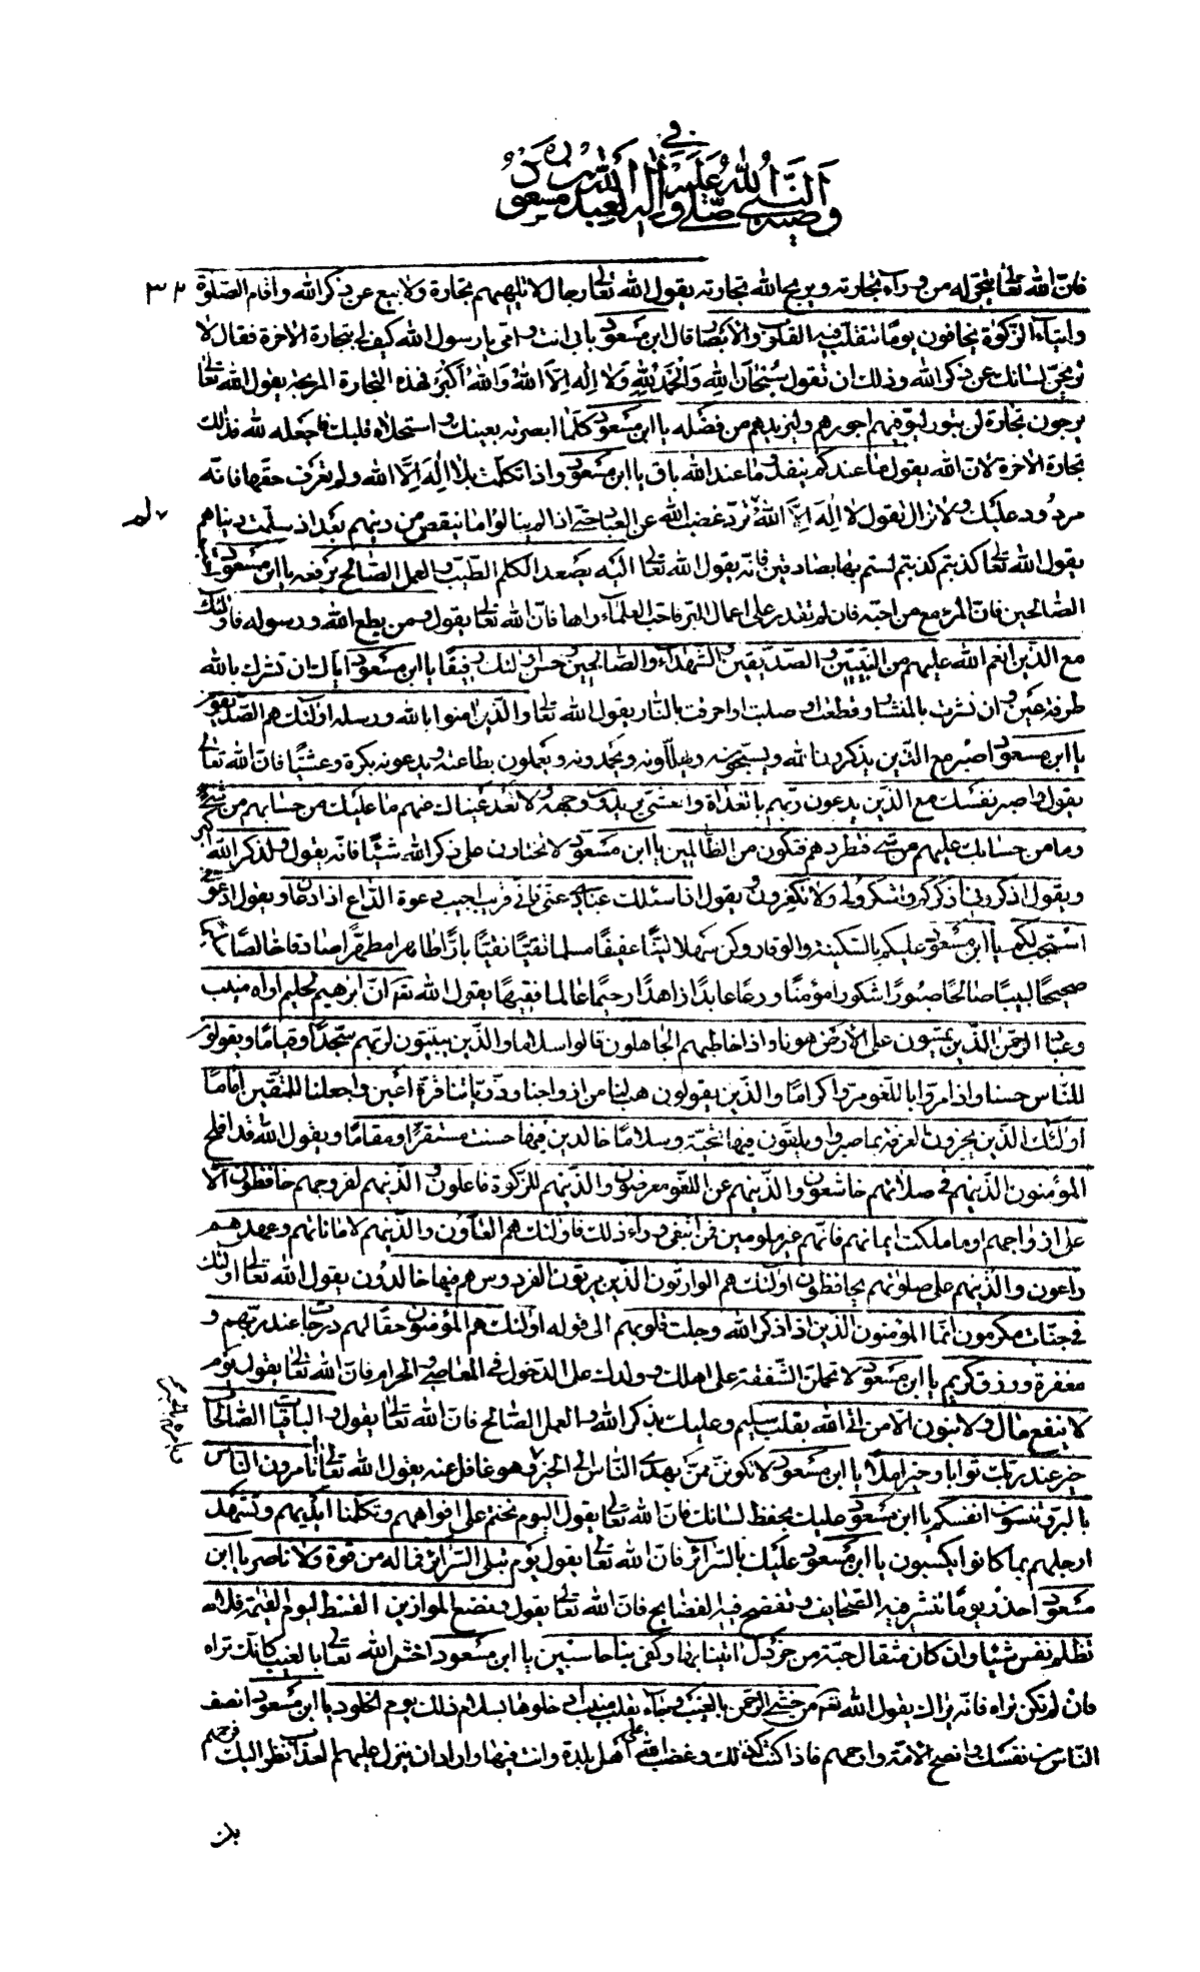 في
وصية النبي صلى الله عليه واله لعبد الله بن مسعود
فان الله تعالى يتجر له من وراء تجارته ويربح الله تجارته يقول الله تعالى رجال لا تلهيهم تجارة ولا بيع عن ذكر الله واقام الصلوة
وايتاء الزكوة يخافون يوما تتقلب فيه القلوب والابصار فقال ابن مسعود بابي انت وامي يا رسول الله كيف لي بتجارة الاخرة فقال لا
تريحن لسانك عن ذكر الله وذلك ان تقول سبحان الله والحمد لله ولا اله الا الله والله اكبر فهذه التجارة المربحة يقول الله تعالى
يرجون تجارة لن تبور ليوفيهم اجورهم ويزيدهم من فضله يا ابن مسعود كلما ابصرته بعينك واستحلاه قلبك فاجعله لله فذلك
تجارة الاخرة لان الله يقول ما عندكم ينفد وما عند الله باق يا ابن مسعود واذا تكلمت بلا اله الا الله ولم تعرف حقها فانه
مردود عليك ولا تزال تقول لا اله الا الله تردّ غضب الله عن العباد حتى اذا لم يبالوا ما ينقص من دينهم بعد اذ سلمت دنياهم
يقول الله تعالى كذبتم كذبتم لستم بها بصادقين فانه يقول الله تعالى اليه يصعد الكلم الطيب والعمل الصالح يرفعه يا ابن مسعود احب
الصالحين فان المرء مع من احبه فان لم تقدر على اعمال البر فاحب العلماء واها فان الله تعالى يقول ومن يطع الله ورسوله فاولئك
مع الذين انعم الله عليهم من النبيين والصديقين والشهداء والصالحين وحسن اولئك رفيقا يا ابن مسعود اياك ان تشرك بالله
طرفة عين وان نشرت بالمنشار او قطعت او صلبت او احرقت بالنار يقول الله تعالى والذين امنوا بالله ورسله اولئك هم الصديقون
يا ابن مسعود اصبر مع الذين يذكرون الله ويسبحونه ويهللونه ويحمدونه ويعملون بطاعته ويدعونه بكرة وعشيا فان الله تعالى
يقول واصبر نفسك مع الذين يدعون ربهم بالغداة والعشي يريدون وجهه ولا تعد عيناك عنهم ما عليك من حسابهم من شيء
وما من حسابك عليهم من شيء فتطردهم فتكون من الظالمين يا ابن مسعود لا تختارن على ذكر الله شيئا فانه يقول ولذكر الله اكبر
ويقول اذكروني اذكركم واشكروا لي ولا تكفرون ويقول اذا سئلك عبادي عني فاني قريب اجيب دعوة الداع اذا دعان ويقول ادعوني
استجب لكم يا ابن مسعود عليكم بالسكينة والوقار وكن سهلا لينا عفيفا مسلما تقيا نقيا بارا طاهرا مطهرا صادقا خالصا
صحيحا لبيبا صالحا صبورا شكورا مؤمنا ورعا عابدا زاهدا رحيما عالما فقيها يقول الله تعم ان ابرهيم لحليم اواه منيب
وعباد الرحمن الذين يمشون على الارض هونا واذا خاطبهم الجاهلون قالوا سلاما والذين يبيتون لربهم سجدا وقياما ويقولون
للناس حسنا واذا مروا باللغو مروا كراما والذين يقولون هب لنا من ازواجنا وذرياتنا قرة اعين واجعلنا للمتقين اماما
اولئك الذين يجزون الغرفة بما صبروا ويلقون فيها تحية وسلاما خالدين فيها حسنت مستقرا ومقاما ويقول الله قد افلح
المؤمنون الذينهم في صلاتهم خاشعون والذينهم عن اللغو معرضون والذينهم للزكوة فاعلون والذينهم لفروجهم حافظون الا
على ازواجهم او ما ملكت ايمانهم فانهم غير ملومين فمن ابتغى وراء ذلك فاولئك هم العادون والذينهم لاماناتهم وعهدهم
راعون والذينهم على صلوتهم يحافظون اولئك هم الوارثون الذين يرثون الفردوس هم فيها خالدون يقول الله تعالى اولئك
في جنات مكرمون انما المؤمنون الذين اذا ذكر الله وجلت قلوبهم الى قوله اولئك هم المؤمنون حقا لهم درجات عند ربهم و
مغفرة ورزق كريم يا ابن مسعود لا تحملن الشفقة على اهلك وولدك على الدخول في المعاصي والحرام فان الله تعالى يقول يوم
لا ينفع مال ولا بنون الا من اتى الله بقلب سليم وعليك بذكر الله والعمل الصالح فان الله تعالى يقول والباقيات الصالحات
خير عند ربك ثوابا وخير املا يا ابن مسعود لا تكونن ممن يهدى الناس الى الخير وهو غافل عنه يقول الله تعالى اتامرون الناس
بالبر وتنسون انفسكم يا ابن مسعود عليك بحفظ لسانك فان الله تعالى يقول اليوم نختم على افواههم وتكلمنا ايديهم وتشهد
ارجلهم بما كانوا يكسبون يا ابن مسعود عليك بالسرائر فان الله تعالى يقول يوم تبلى السرائر فما له من قوة ولا ناصر يا ابن
مسعود احذر يوما تنشر فيه الصحايف وتفضح فيه الفضايح فان الله تعالى يقول ونضع الموازين القسط ليوم القيمة فلا
تظلم نفس شيئا وان كان مثقال حبة من خردل اتينا بها وكفى بنا حاسبين يا ابن مسعود اخش الله تعالى بالغيب كانك تراه
فان لم تكن تراه فانه يراك يقول الله تعم من خشي الرحمن بالغيب وجاء بقلب منيب ادخلوها بسلام ذلك يوم الخلود يا ابن مسعود انصف
الناس من نفسك وانصح الامة وارحمهم فاذا كنت كذلك وغضب الله على اهل بلدة وانت فيها واراد ان ينزل عليهم العذاب نظر اليك فرحمهم
بك